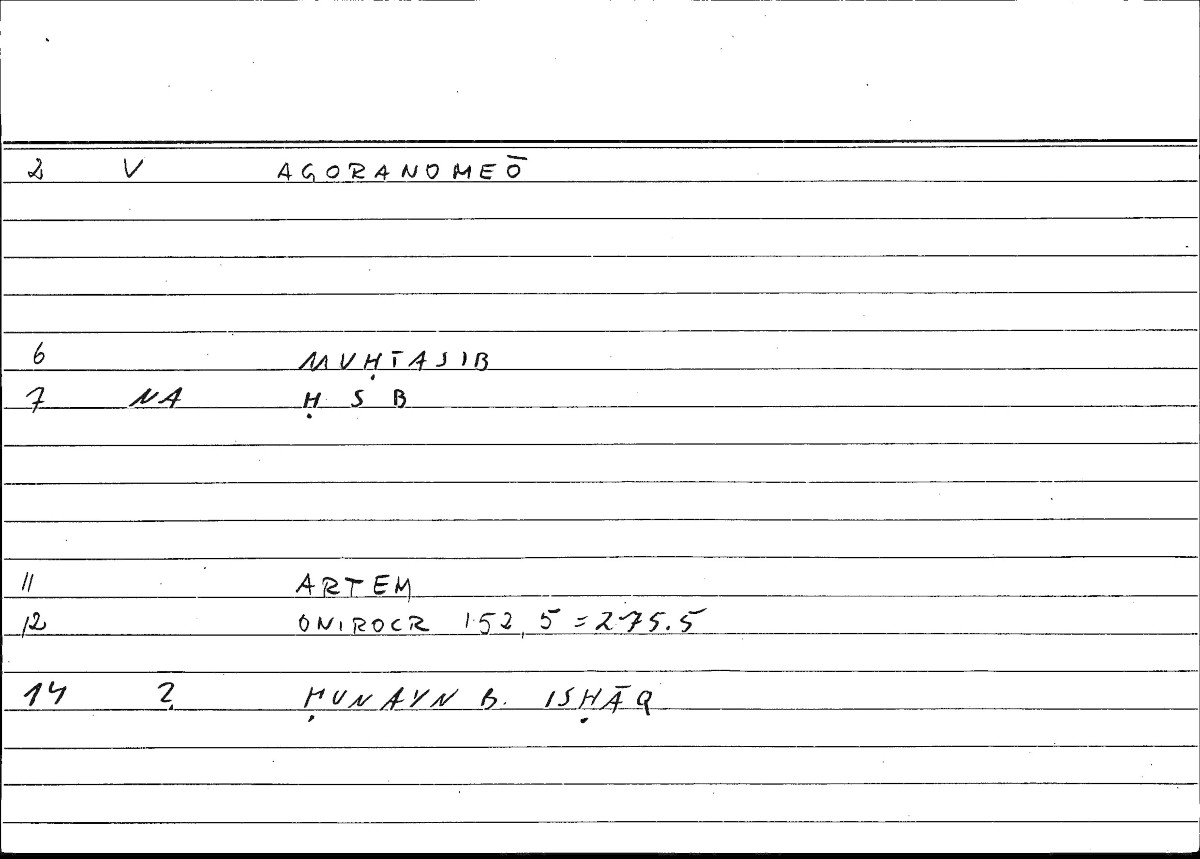 2 V AGORANOMEŌ
6 MUḤTASIB
7 NA Ḥ S B
11 ARTEM
12 ONIROCR 152,5 = 275.5
14 2. ḤUNAYN B. ISḤĀQ